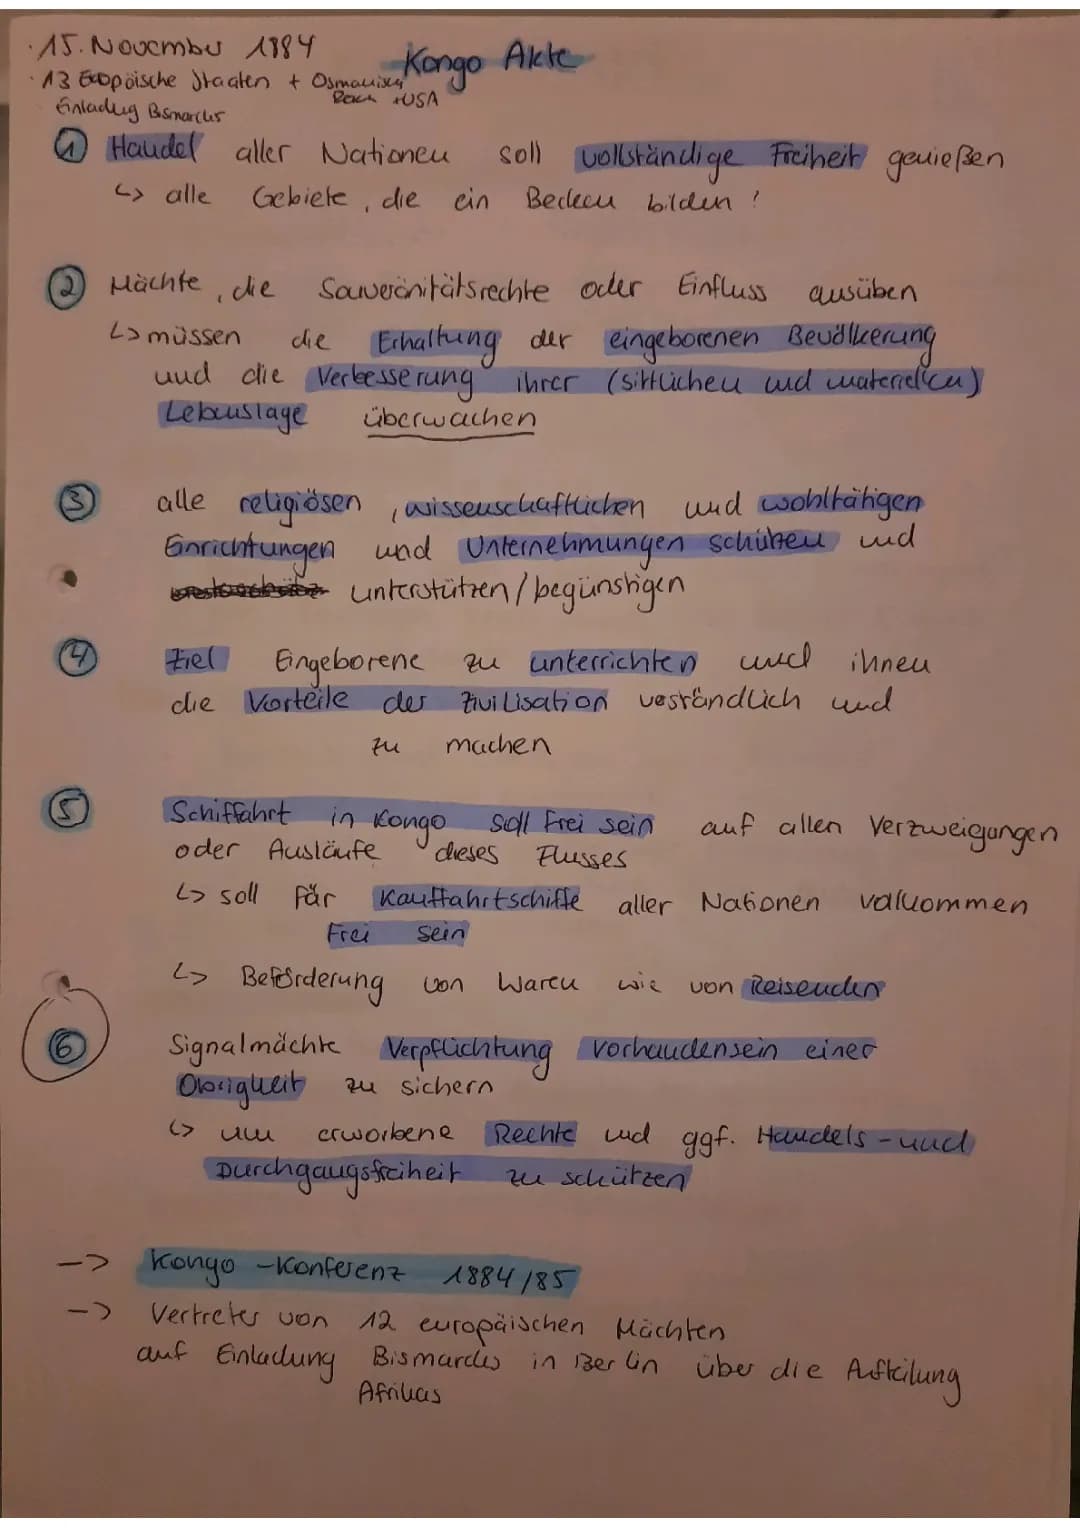 · 15. November 1884
Kongo Akte
· 13 Europäische Staaten + Osmanisch
Reich + USA
Einladug Bismarcks
① Handel aller Nationen soll vollständige Freiheit genießen
↳ alle Gebiete, die ein Becken bilden !
② Mächte, die Souveränitätsrechte oder Einfluss ausüben
↳ müssen die Erhaltung der eingeborenen Bevölkerung
und die Verbesserung ihrer (sittlichen und materiellen)
Lebenslage überwachen
③ alle religiösen, wissenschaftlichen und wohltätigen
Einrichtungen und Unternehmungen schützen und
unterstützen / begünstigen
④ Ziel Eingeborene zu unterrichten und ihnen
die Vorteile der Zivilisation verständlich und
zu machen
⑤ Schiffahrt in Kongo soll frei sein auf allen Verzweigungen
oder Ausläufe dieses Flusses
↳ soll für Kauffahrtschiffe aller Nationen vollkommen
Frei sein
↳ Beförderung von Waren wie von Reisenden
⑥ Signalmächte Verpflichtung vorhandensein einer
Obrigkeit zu sichern
↳ um erworbene Rechte und ggf. Handels- und
Durchgangsfreiheit zu schützen
-> Kongo - Konferenz 1884/85
-> Vertreter von 12 europäischen Mächten
auf Einladung Bismarcks in Berlin über die Aufteilung
Afrikas